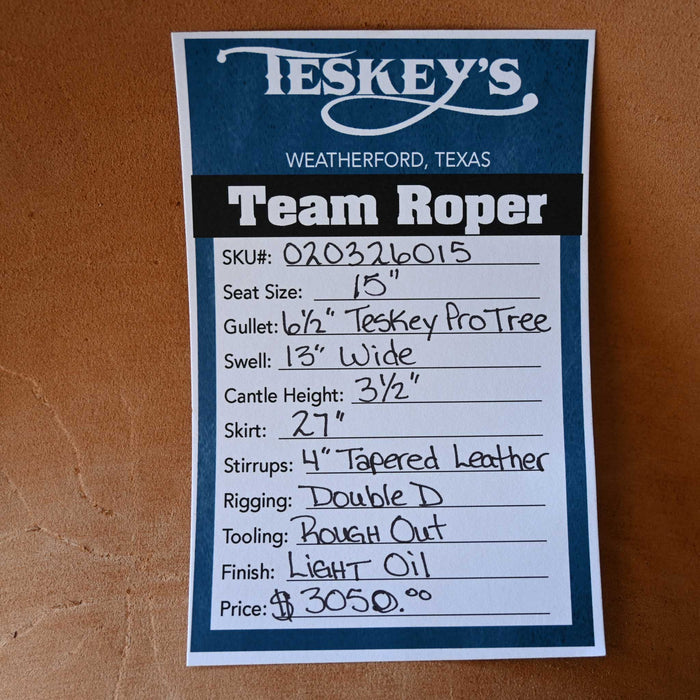 TESKEY'S
WEATHERFORD, TEXAS
Team Roper
SKU#: 020326015
Seat Size: 15"
Gullet: 6½" Teskey Pro Tree
Swell: 13" Wide
Cantle Height: 3½"
Skirt: 27"
Stirrups: 4" Tapered Leather
Rigging: Double D
Tooling: Rough Out
Finish: Light Oil
Price: $3050.⁰⁰